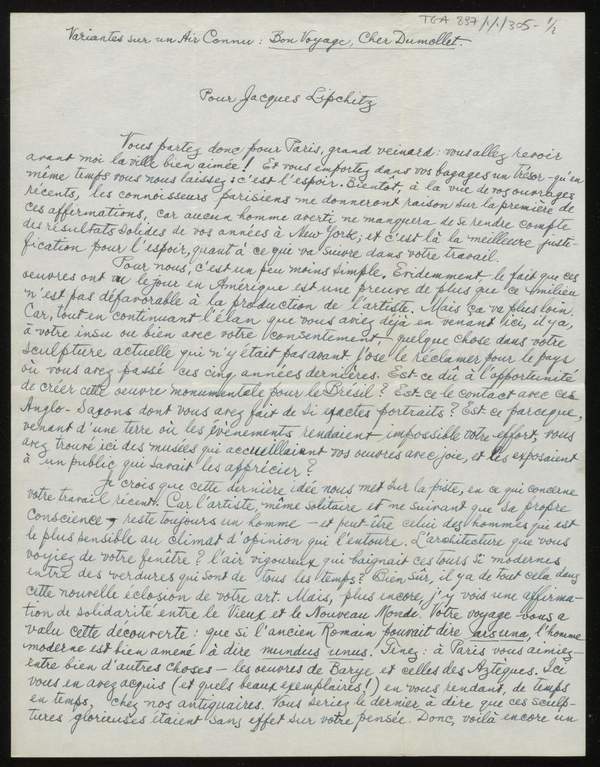 TGA 897/1/1/305-1/2
Variantes sur un Air Connu : Bon Voyage, Cher Dumollet.
Pour Jacques Lipchitz
Vous partez donc pour Paris, grand veinard : vous allez revoir
avant moi la ville bien aimée! Et vous emportez dans vos bagages un trésor - qu'en
même temps vous nous laissez : c'est l'espoir. Bientôt, à la vue de vos ouvrages
récents, les connoisseurs parisiens me donneront raison sur la première de
ces affirmations, car aucun homme averti ne manquera de se rendre compte
des résultats solides de vos années à New York; et c'est là la meilleure justi-
fication pour l'espoir, quant à ce qui va suivre dans votre travail.
Pour nous, c'est un peu moins simple. Evidemment le fait que ces
oeuvres ont vu le jour en Amérique est une preuve de plus que ce milieu
n'est pas défavorable à la production de l'artiste. Mais ça va plus loin.
Car, tout en continuant l'élan que vous aviez déjà en venant ici, il y a,
à votre insu ou bien avec votre consentement, quelque chose dans votre
sculpture actuelle qui n'y était pas avant. J'ose le réclamer pour le pays
où vous avez passé ces cinq années dernières. Est-ce dû à l'opportunité
de créer cette oeuvre monumentale pour le Brésil? Est-ce le contact avec ces
Anglo-Saxons dont vous avez fait de si exactes portraits? Est-ce parceque,
venant d'une terre où les évènements rendaient impossible votre effort, vous
avez trouvé ici des musées qui accueillaient vos oeuvres avec joie, et les exposaient
à un public qui savait les apprécier?
Je crois que cette dernière idée nous met sur la piste, en ce qui concerne
votre travail récent. Car l'artiste, même solitaire et ne suivant que sa propre
conscience, reste toujours un homme - et peut être celui des hommes qui est
le plus sensible au climat d'opinion qui l'entoure. L'architecture que vous
voyiez de votre fenêtre? l'air vigoureux qui baignait ces tours si modernes
entre des verdures qui sont de tous les temps? Bien sur, il y a de tout cela dans
cette nouvelle éclosion de votre art. Mais, plus encore, j'y vois une affirma-
tion de solidarité entre le Vieux et le Nouveau Monde. Votre voyage vous a
valu cette découverte : que si l'ancien Romain pouvait dire ars una, l'homme
moderne est bien amené à dire mundus unus. Tinez : à Paris vous aimiez -
entre bien d'autres choses - les oeuvres de Barye et celles des Aztèques. Ici
vous en avez acquis (et quels beaux exemplaires!) en vous rendant, de temps
en temps, chez nos antiquaires. Vous seriez le dernier à dire que ces sculp-
tures glorieuses étaient sans effet sur votre pensée. Donc, voilà encore un